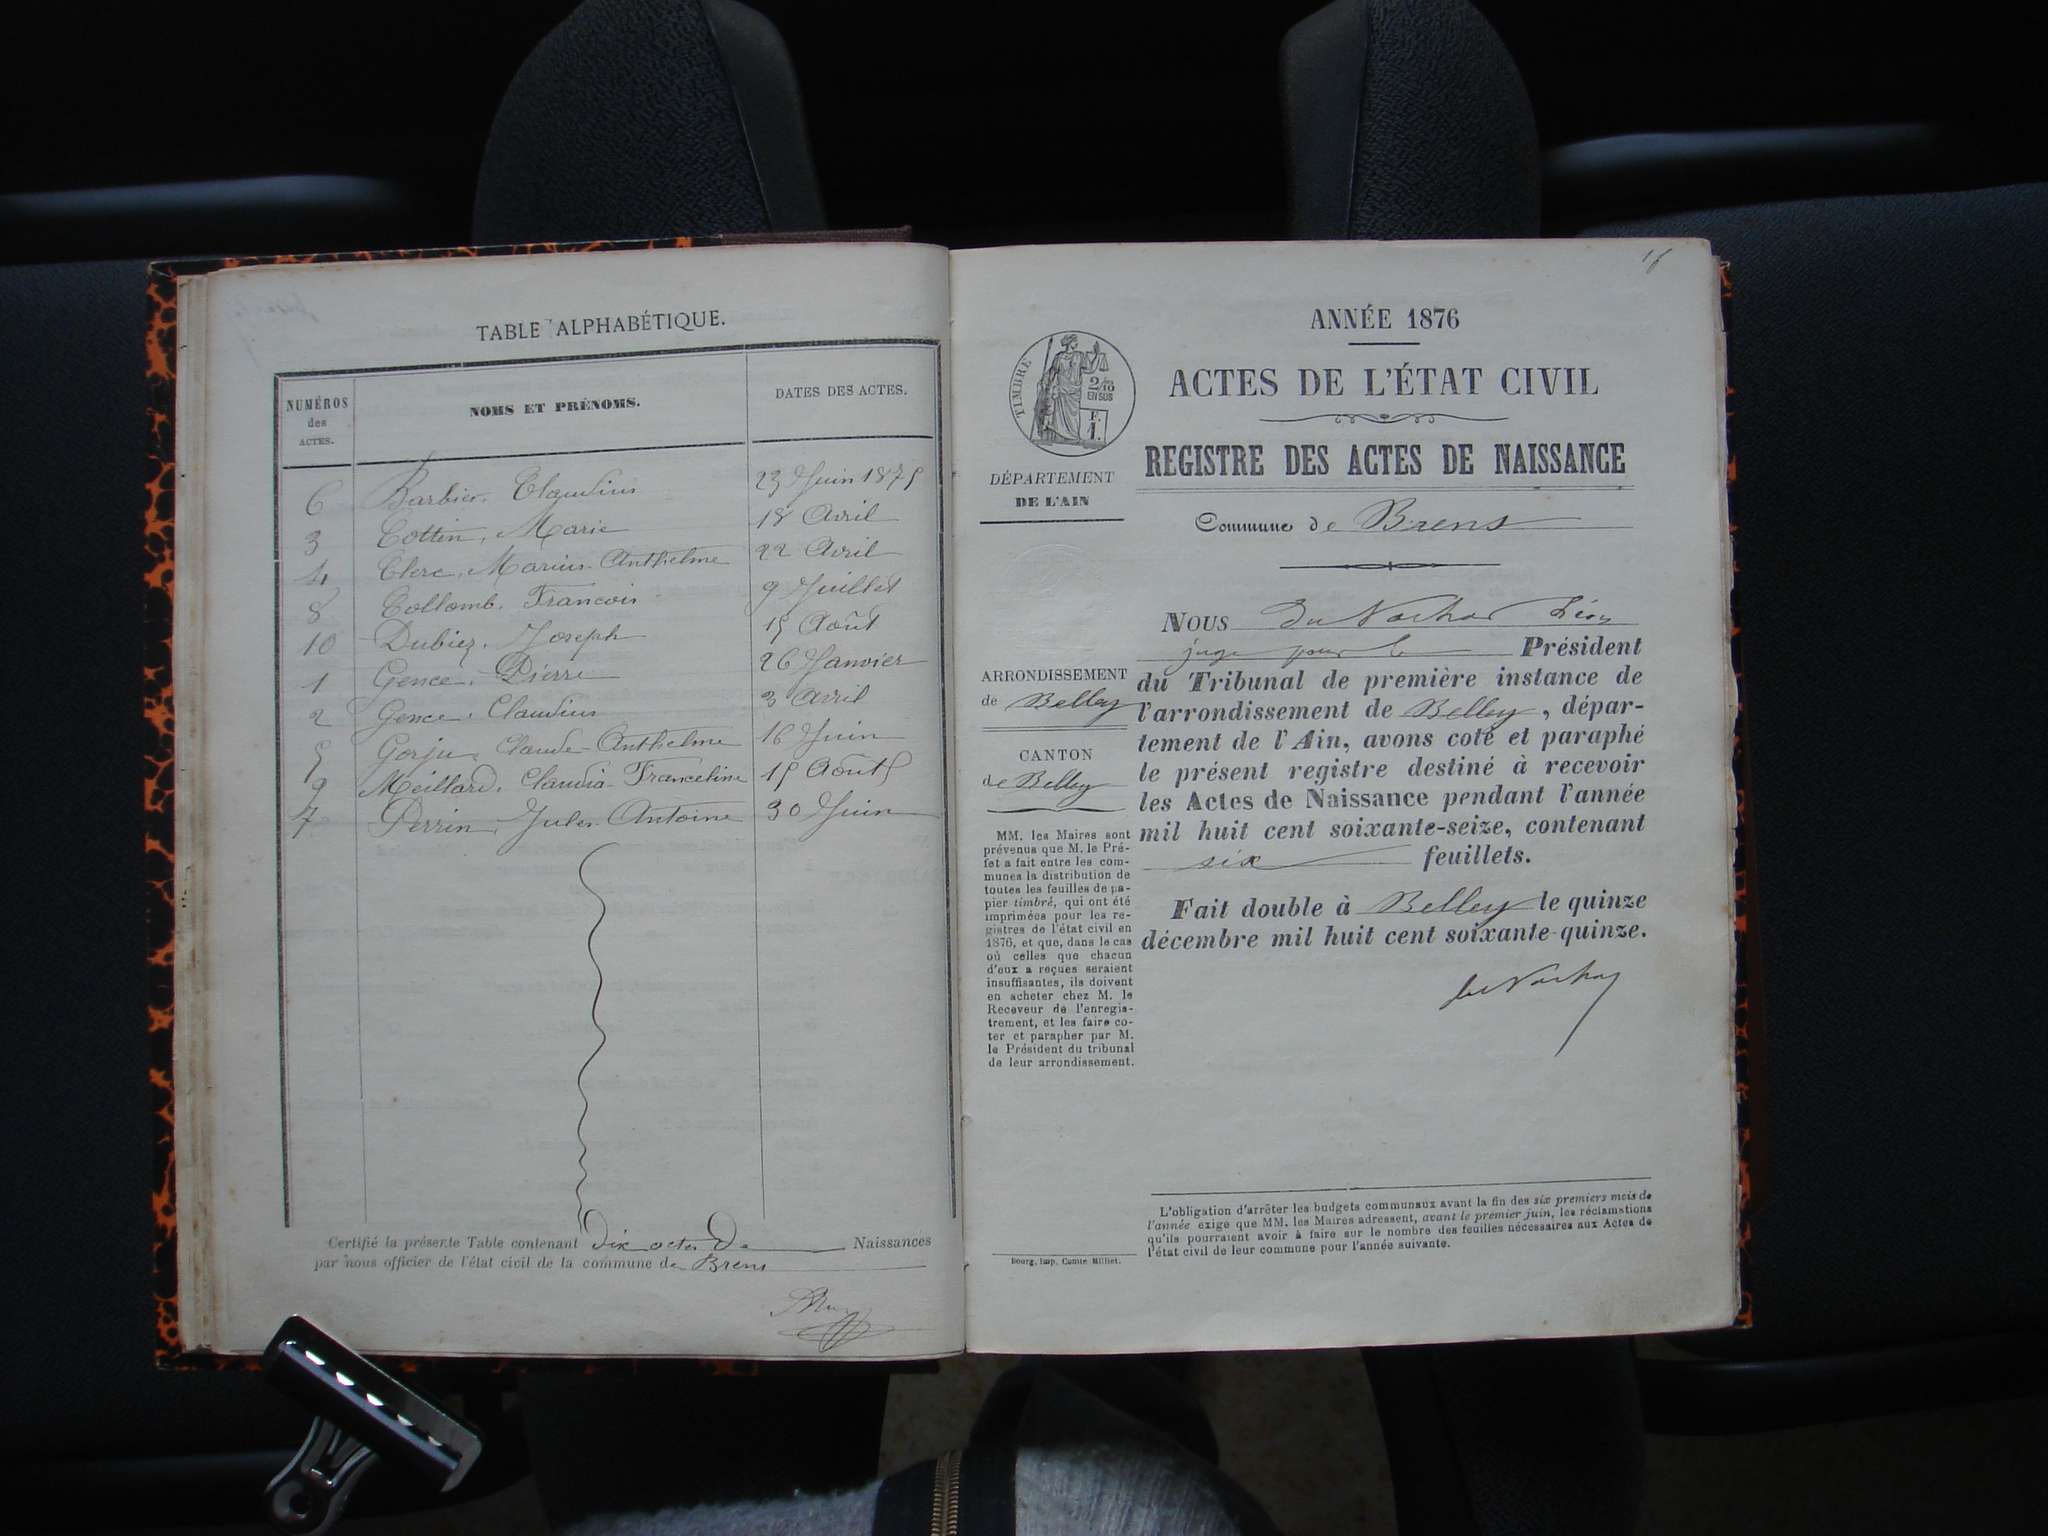 TABLE ALPHABÉTIQUE.
NUMÉROS
des
ACTES.
NOMS ET PRÉNOMS.
DATES DES ACTES.
6 Barbier, Claudius 23 Juin 1875
3 Cottin, Marie 18 Avril
4 Clerc, Marius Anthelme 22 Avril
8 Collomb, Francois 9 Juillet
10 Dubiez, Joseph 15 Août
1 Gence, Pierre 26 Janvier
2 Gence, Claudius 3 Avril
5 Gorju, Claude Anthelme 16 Juin
9 Meillard, Claudia Franceline 15 Août
7 Perrin, Jules Antoine 30 Juin
Certifié la présente Table contenant dix actes de Naissances
par nous officier de l'état civil de la commune de Brens
16
TIMBRE
2/10
EN SUS
F.
1.
DÉPARTEMENT
DE L'AIN
ARRONDISSEMENT
de Belley
CANTON
de Belley
MM. les Maires sont
prévenus que M. le Pré-
fet a fait entre les com-
munes la distribution de
toutes les feuilles de pa-
pier timbré, qui ont été
imprimées pour les re-
gistres de l'état civil en
1876, et que, dans le cas
où celles que chacun
d'eux a reçues seraient
insuffisantes, ils doivent
en acheter chez M. le
Receveur de l'enregis-
trement, et les faire co-
ter et parapher par M.
le Président du tribunal
de leur arrondissement.
Bourg, Imp. Comte Milliet.
ANNÉE 1876
ACTES DE L'ÉTAT CIVIL
REGISTRE DES ACTES DE NAISSANCE
Commune de Brens
Nous du Nachat Léon
juge pour le Président
du Tribunal de première instance de
l'arrondissement de Belley, dépar-
tement de l'Ain, avons coté et paraphé
le présent registre destiné à recevoir
les Actes de Naissance pendant l'année
mil huit cent soixante-seize, contenant
six feuillets.
Fait double à Belley le quinze
décembre mil huit cent soixante-quinze.
L'obligation d'arrêter les budgets communaux avant la fin des six premiers mois de
l'année exige que MM. les Maires adressent, avant le premier juin, les réclamations
qu'ils pourraient avoir à faire sur le nombre des feuilles nécessaires aux Actes de
l'état civil de leur commune pour l'année suivante.